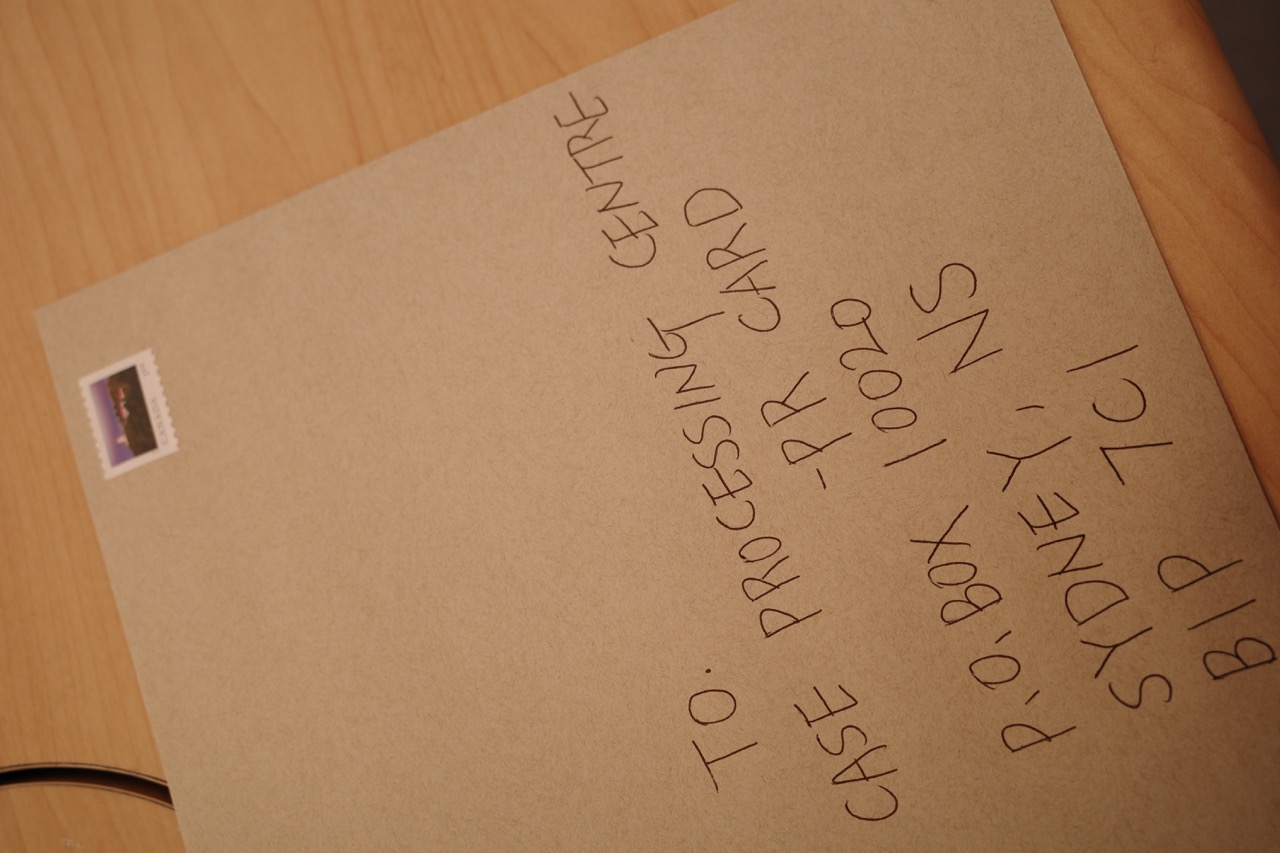 TO.
CASE PROCESSING CENTRE
-PR CARD
P.O. BOX 10020
SYDNEY, NS
B1P 7C1
CANADA